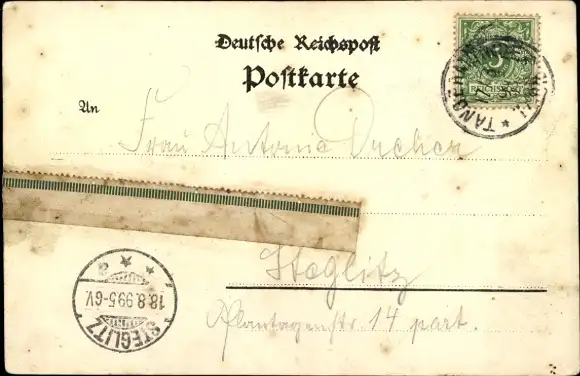 Deutsche Reichspost
Postkarte
An
Frau Antonie Drecher
Steglitz
Plantagenstr. 14 part.
5
REICHSPOST
TANGERMÜNDE
STEGLITZ
18.8.99.5-6V.
a